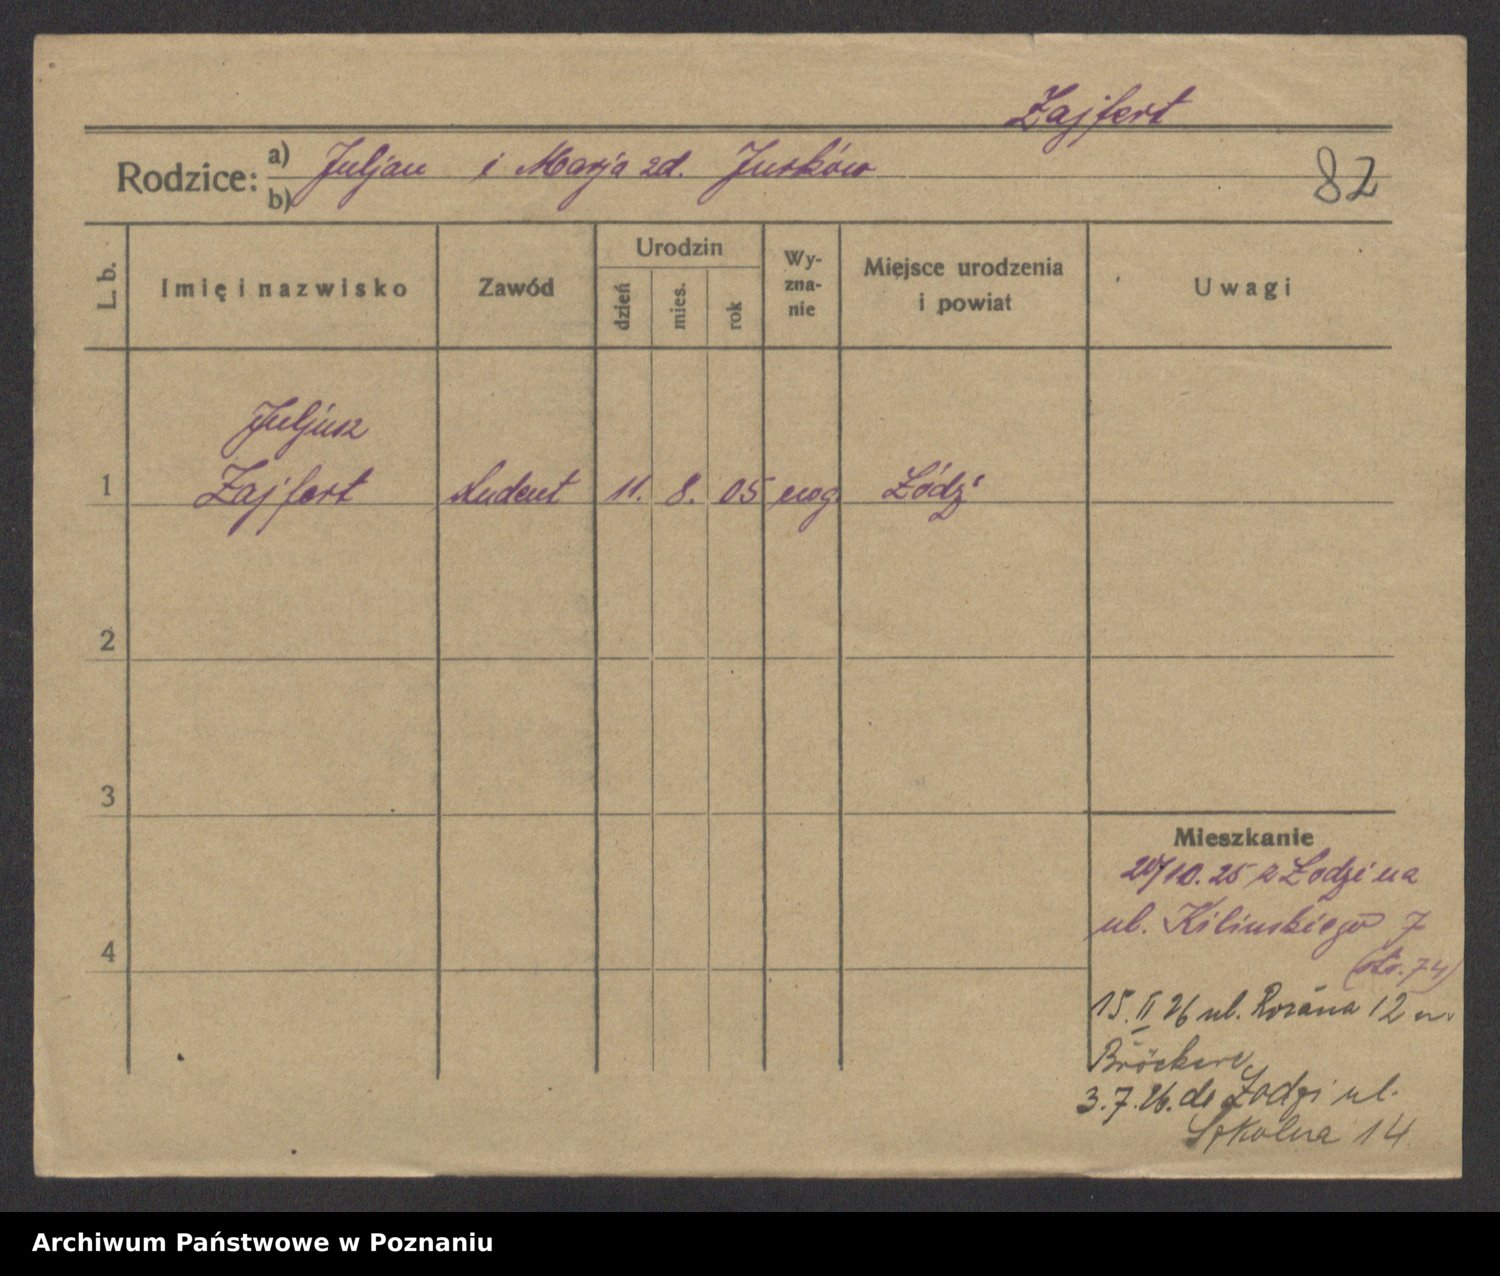 Zajfert
Rodzice: a) Juljan i Marja zd. Jusków
b)
82
L. b.
Imię i nazwisko
Zawód
Urodzin
dzień
mies.
rok
Wy-
zna-
nie
Miejsce urodzenia
i powiat
Uwagi
Juljusz
1 Zajfert student 11. 8. 05 ewg Łódź
2
3
4
Mieszkanie
10.25 z Łodzi na
ul. Kilińskiego 7
(str. 74)
15.II 26 ul. Różana 12
3.7.26. do Łodzi ul.
Szkolna 14
Archiwum Państwowe w Poznaniu